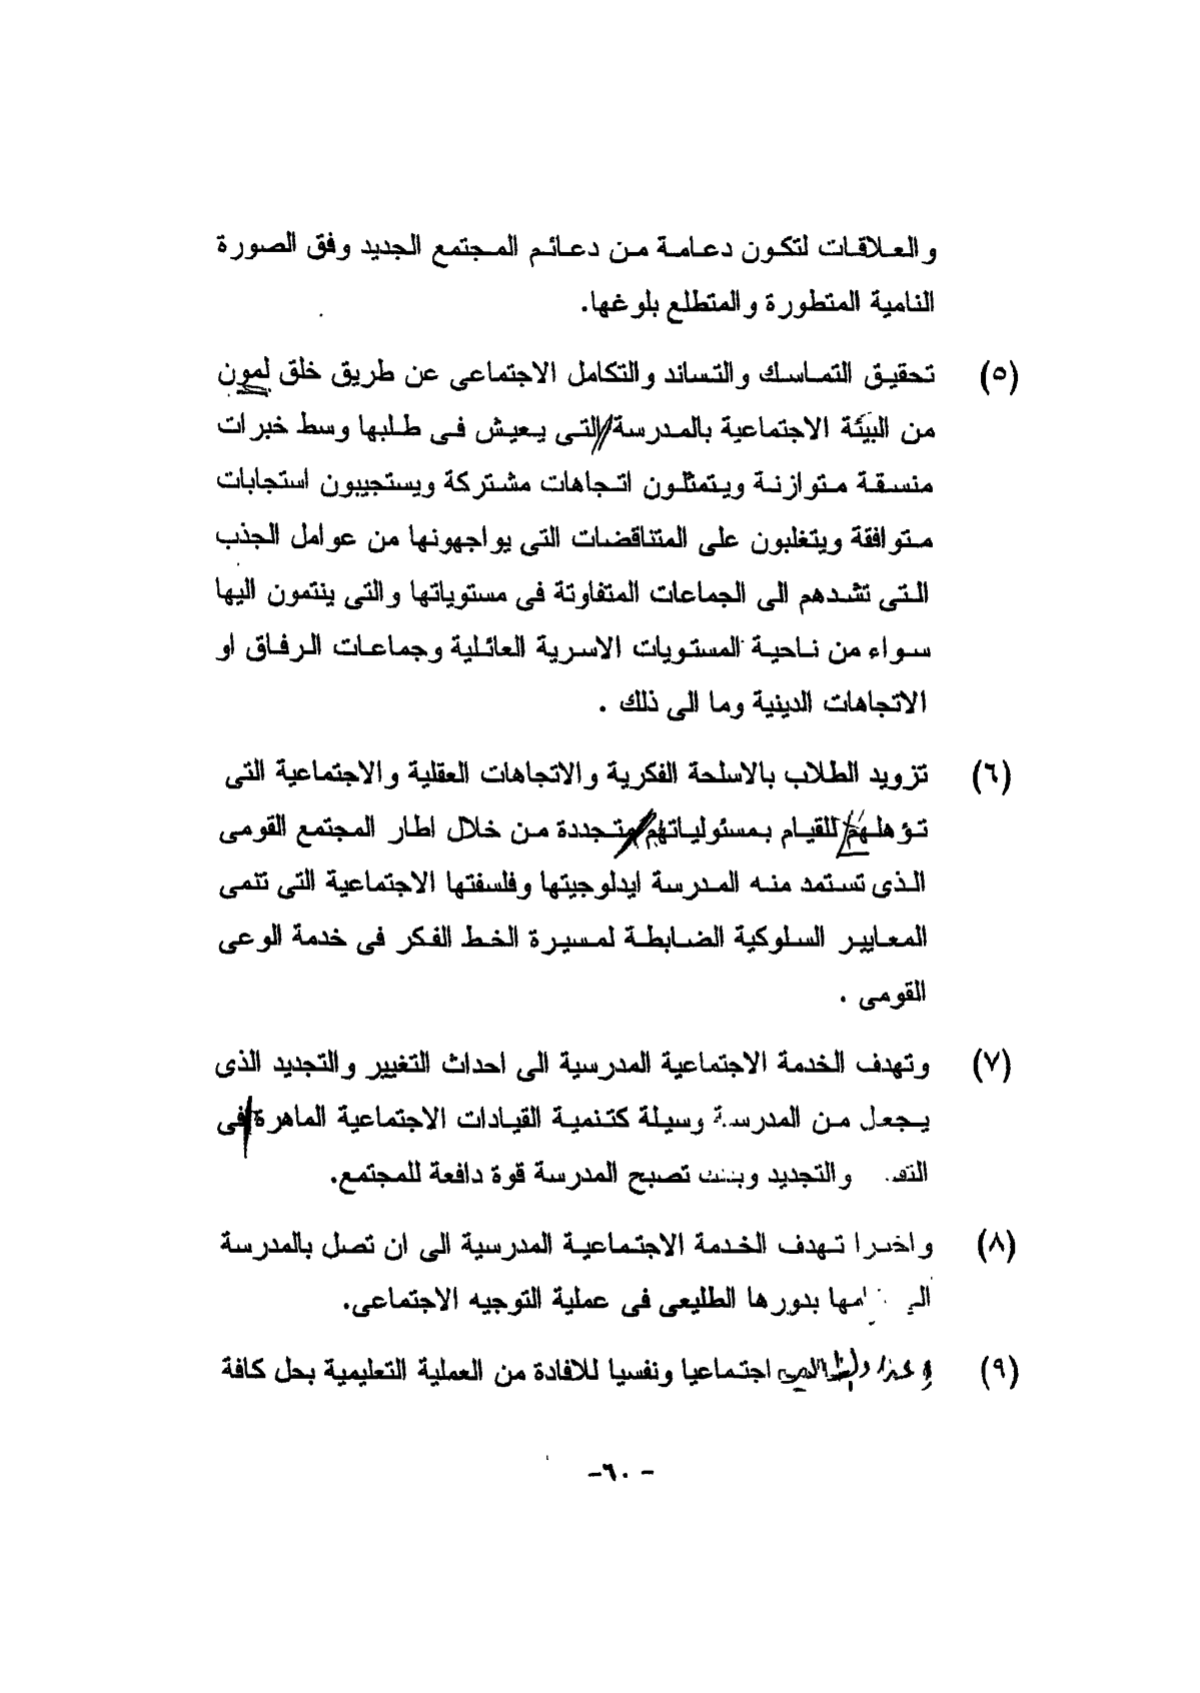 والعلاقات لتكون دعامة من دعائم المجتمع الجديد وفق الصورة
النامية المتطورة والمتطلع بلوغها.
(٥) تحقيق التماسك والتساند والتكامل الاجتماعى عن طريق خلق لمون
من البيئة الاجتماعية بالمدرسة التى يعيش فى طلبها وسط خبرات
منسقة متوازنة ويتمثلون اتجاهات مشتركة ويستجيبون استجابات
متوافقة ويتغلبون على المتناقضات التى يواجهونها من عوامل الجذب
التى تشدهم الى الجماعات المتفاوتة فى مستوياتها والتى ينتمون اليها
سواء من ناحية المستويات الاسرية العائلية وجماعات الرفاق او
الاتجاهات الدينية وما الى ذلك .
(٦) تزويد الطلاب بالاسلحة الفكرية والاتجاهات العقلية والاجتماعية التى
تؤهلهم للقيام بمسئولياتهم متجددة من خلال اطار المجتمع القومى
الذى تستمد منه المدرسة ايدلوجيتها وفلسفتها الاجتماعية التى تنمى
المعايير السلوكية الضابطة لمسيرة الخط الفكر فى خدمة الوعى
القومى .
(٧) وتهدف الخدمة الاجتماعية المدرسية الى احداث التغيير والتجديد الذى
يجعل من المدرسة وسيلة كتنمية القيادات الاجتماعية الماهرة فى
والتجديد تصبح المدرسة قوة دافعة للمجتمع.
(٨) واخيرا تهدف الخدمة الاجتماعية المدرسية الى ان تصل بالمدرسة
بدورها الطليعى فى عملية التوجيه الاجتماعى.
(٩) اجتماعيا ونفسيا للافادة من العملية التعليمية بحل كافة
-٦٠-